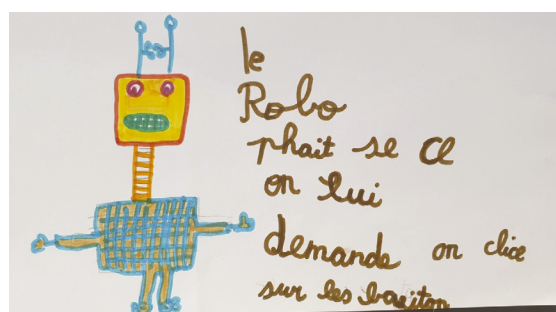 le
Robo
phait se Ce
on lui
demande on clice
sur les bouiton